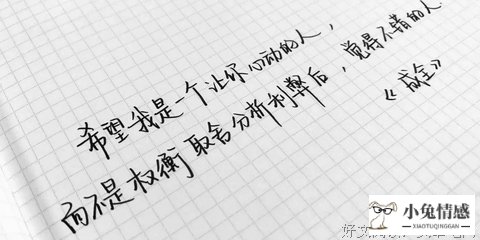 希望我是一个让你心动的人，
而不是权衡取舍分析利弊后，觉得不错的人
《成全》
小兔情感
XIAOTUQINGGAN